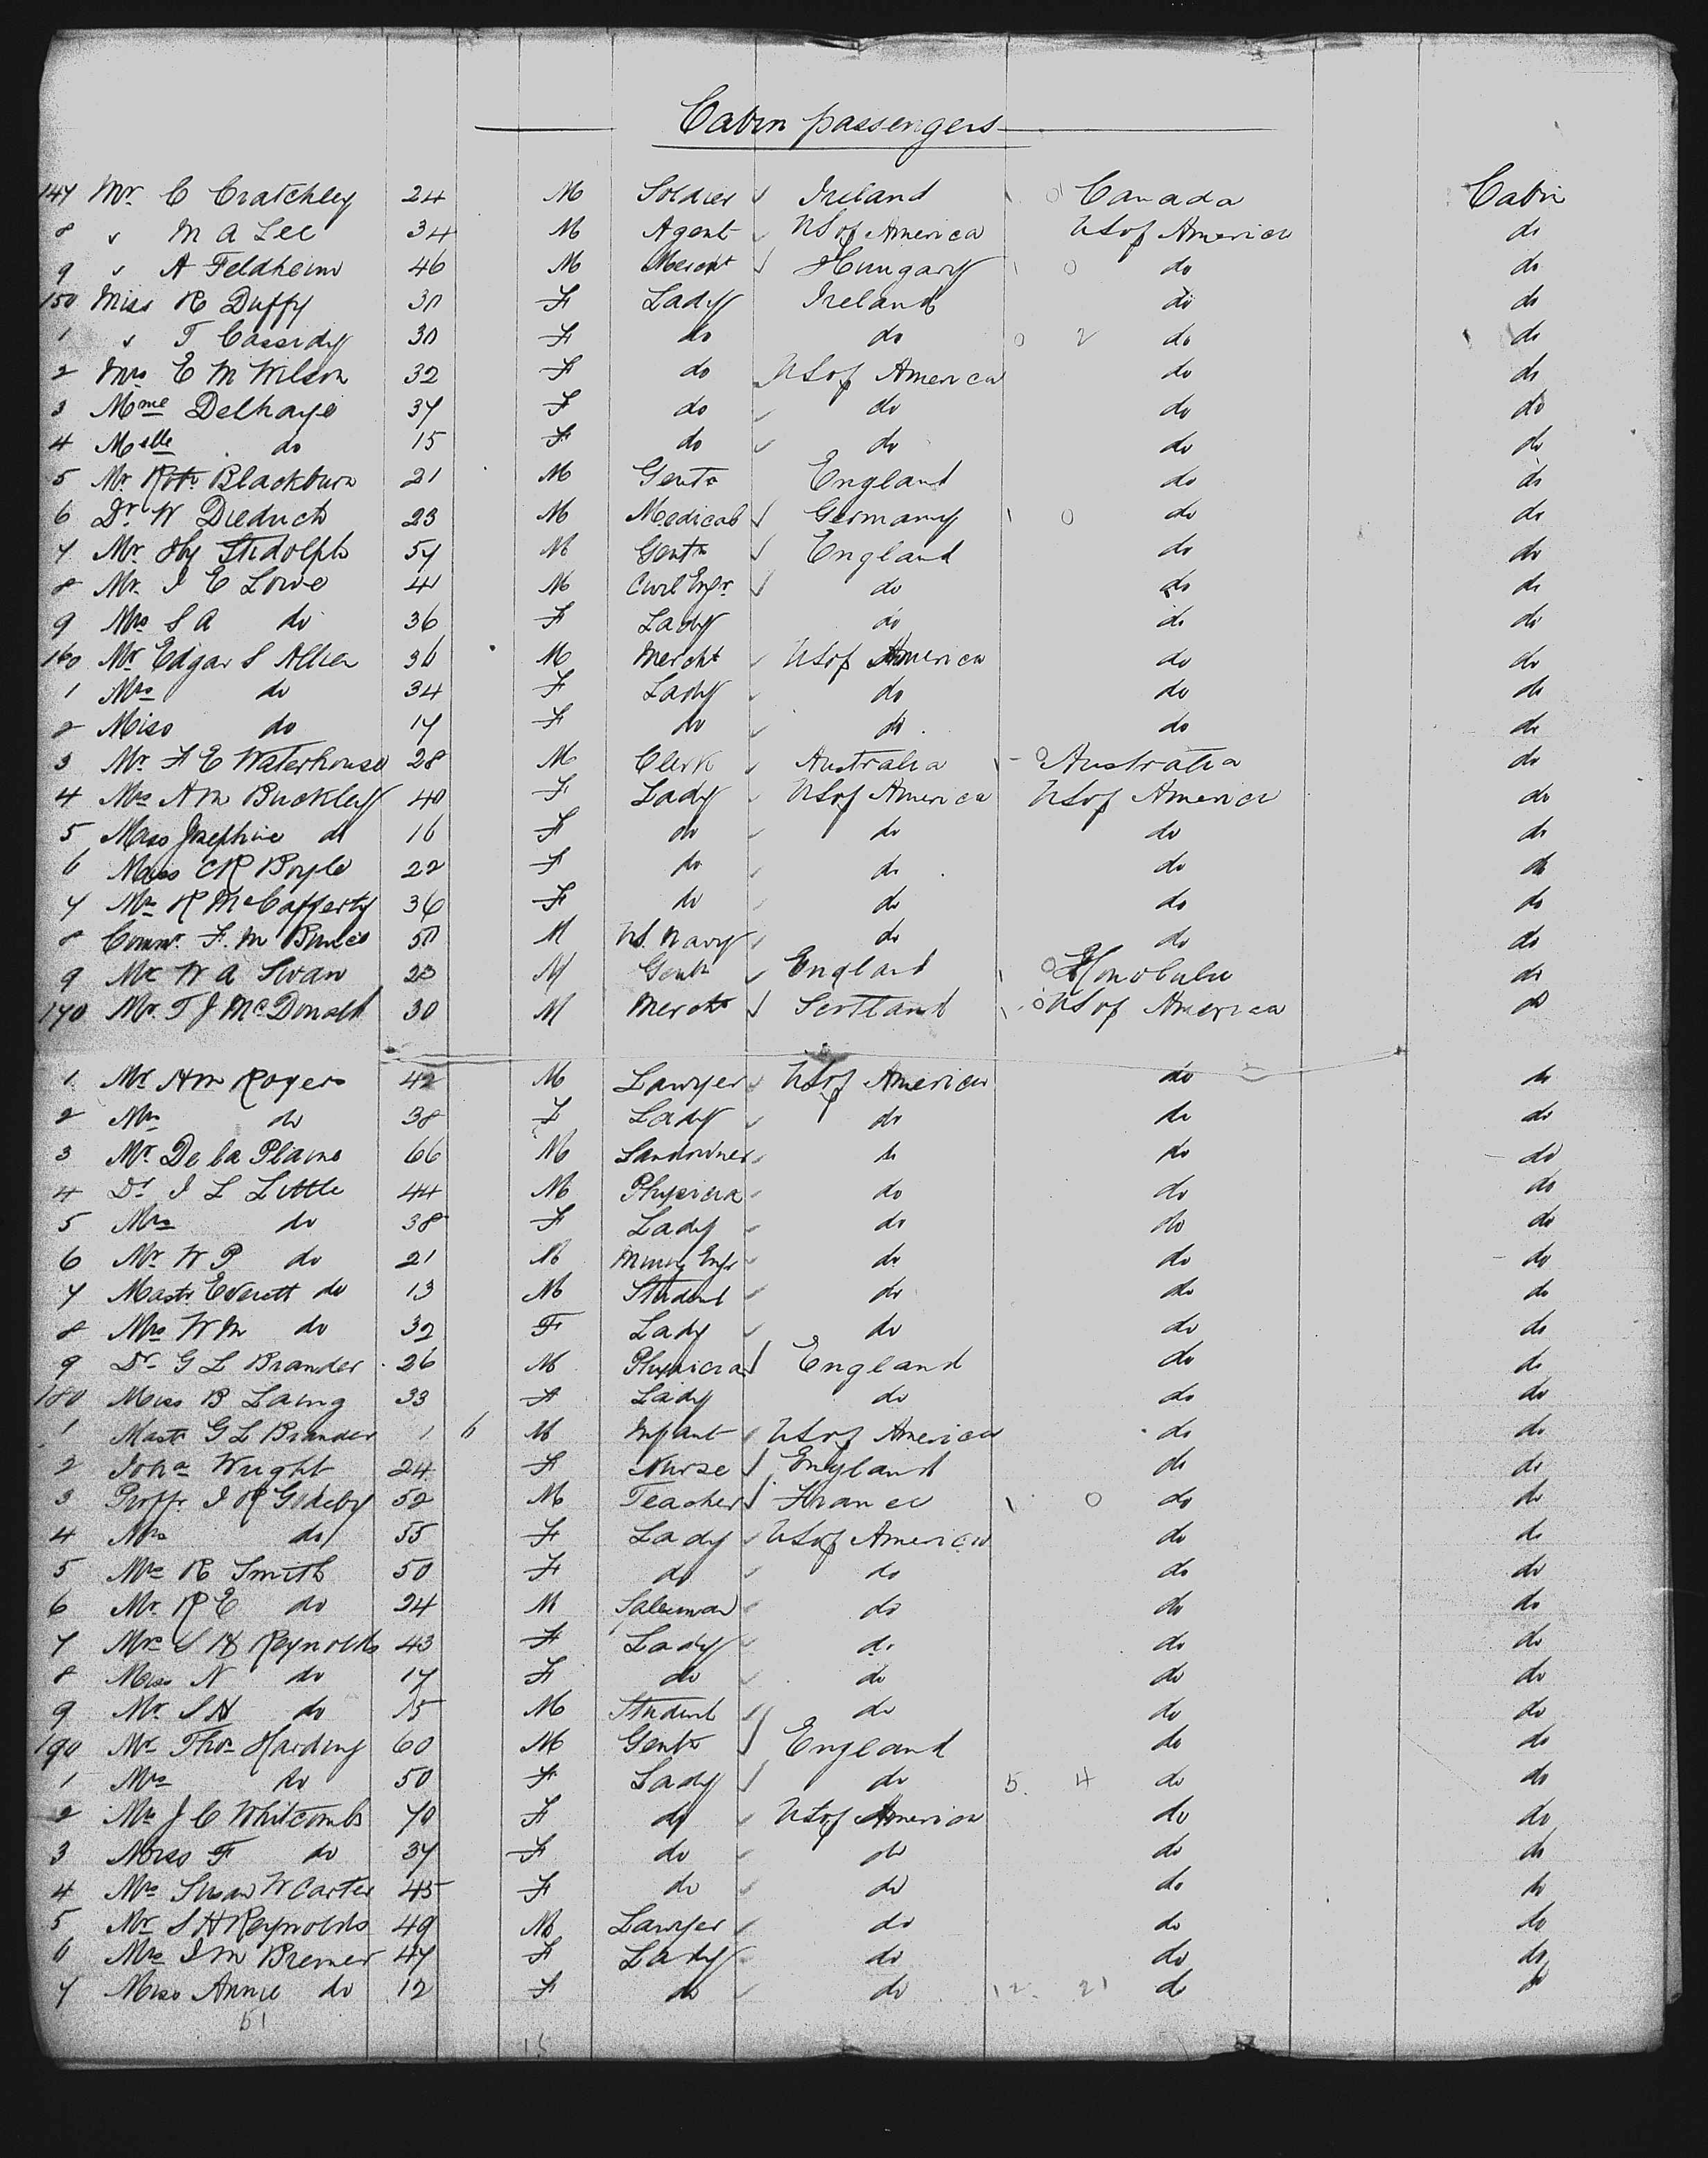 Cabin passengers
147 Mr. C Cratchley 24 M Soldier Ireland Canada Cabin
8 " M A Lee 34 M Agent US of America US of America do
9 " A Feldheim 46 M Mercht Hungary 1 0 do do
150 Miss R Duffy 30 F Lady Ireland do do
1 " T Cassidy 30 F do do 0 2 do do
2 Mrs E M Wilson 32 F do US of America do do
3 Mme Delhaye 37 F do do do do
4 Melle do 15 F do do do do
5 Mr Robt Blackburn 21 M Gentn England do do
6 Dr. W 23 M Medical Germany 1 0 do do
7 Mr. Hy Studolph 57 M Gentn England do do
8 Mr. J E Lowe 41 M Civil Engr. do do do
9 Mrs S A do 36 F Lady do do do
160 Mr Edgar S Allen 36 M Mercht US of America do do
1 Mrs do 34 F Lady do do do
2 Miss do 17 F do do do do
3 Mr. F E Waterhouse 28 M Clerk Australia Australia do
4 Mrs A M Buckley 40 F Lady US of America US of America do
5 Miss Josephine do 16 F do do do do
6 Miss C R Boyle 22 F do do do do
7 Mrs R McCafferty 36 F do do do do
8 Commr. F. M 50 M U.S. Navy do do do
9 Mr W A Swan 23 M Gentn England Honolulu do
170 Mr. T J McDonald 30 M Mercht Scotland US of America do
1 Mr H M Rogers 42 M Lawyer US of America do do
2 Mrs do 38 F Lady do do do
3 Mr. De la Plaine 66 M Landowner do do do
4 Dr J L Little 44 M Physician do do do
5 Mrs do 38 F Lady do do do
6 Mr W P do 21 M Mining Engr do do do
7 Mastr Everett do 13 M Student do do do
8 Mrs W M do 32 F Lady do do do
9 Dr G L Brander 26 M Physician England do do
180 Miss B Laing 33 F Lady do do do
1 Mastr G L Brander 1 6 M Infant US of America do do
2 Joha Wright 24 F Nurse England do do
3 Proffr. J R 52 M Teacher France 1 0 do do
4 Mrs do 55 F Lady US of America do do
5 Mrs R Smith 50 F do do do do
6 Mr. R E do 24 M Salesman do do do
7 Mrs S H Reynolds 43 F Lady do do do
8 Miss N do 17 F do do do do
9 Mr. S H do 15 M Student do do do
190 Mr Thos Harding 60 M Gentn England do do
1 Mrs do 50 F Lady do 5. 4 do do
2 Mrs J C Whitcomb 70 F do US of America do do
3 Miss F do 37 F do do do do
4 Mrs Susan W Carter 45 F do do do do
5 Mr S H Reynolds 49 M Lawyer do do do
6 Mrs J M Bremer 47 F Lady do do do
7 Miss Annie do 12 F do do 12. 21 do do
51
15